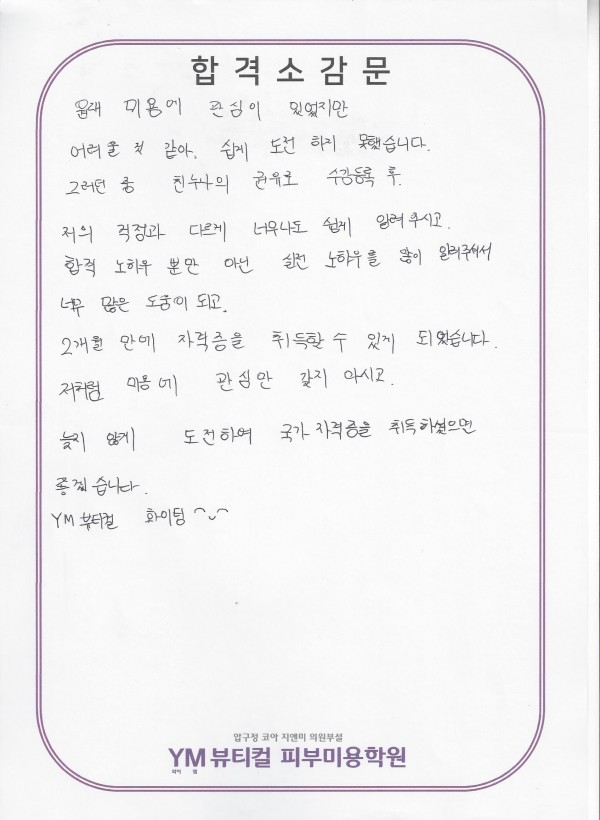 합격소감문
원래 미용에 관심이 있었지만
어려울 것 같아, 쉽게 도전 하지 못했습니다.
그러던 중 친누나의 권유로 수강등록 후.
저의 걱정과 다르게 너무나도 쉽게 알려주시고.
합격 노하우 뿐만 아닌 실전 노하우를 많이 알려주셔서
너무 많은 도움이 되고,
2개월 만에 자격증을 취득할 수 있게 되었습니다.
저처럼 미용에 관심만 갖지 마시고.
늦지 않게 도전하여 국가자격증을 취득하셨으면
좋겠습니다.
YM뷰티컬 화이팅 ^ᴗ^
압구정 코아 지앤미 의원부설
YM뷰티컬 피부미용학원
와이 엠